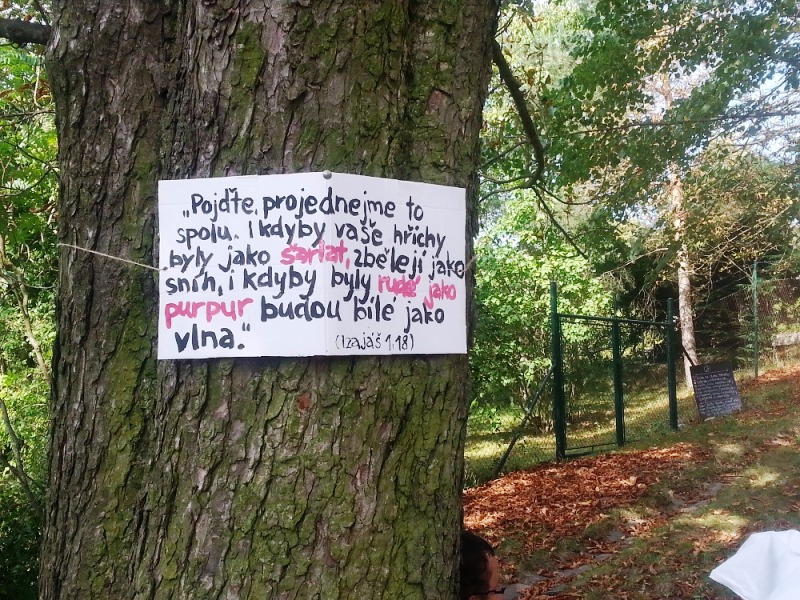 „Pojďte, projednejme to
spolu. I kdyby vaše hříchy
byly jako šarlat, zbělejí jako
sníh, i kdyby byly rudé jako
purpur budou bílé jako
vlna.“
(Izajáš 1,18)